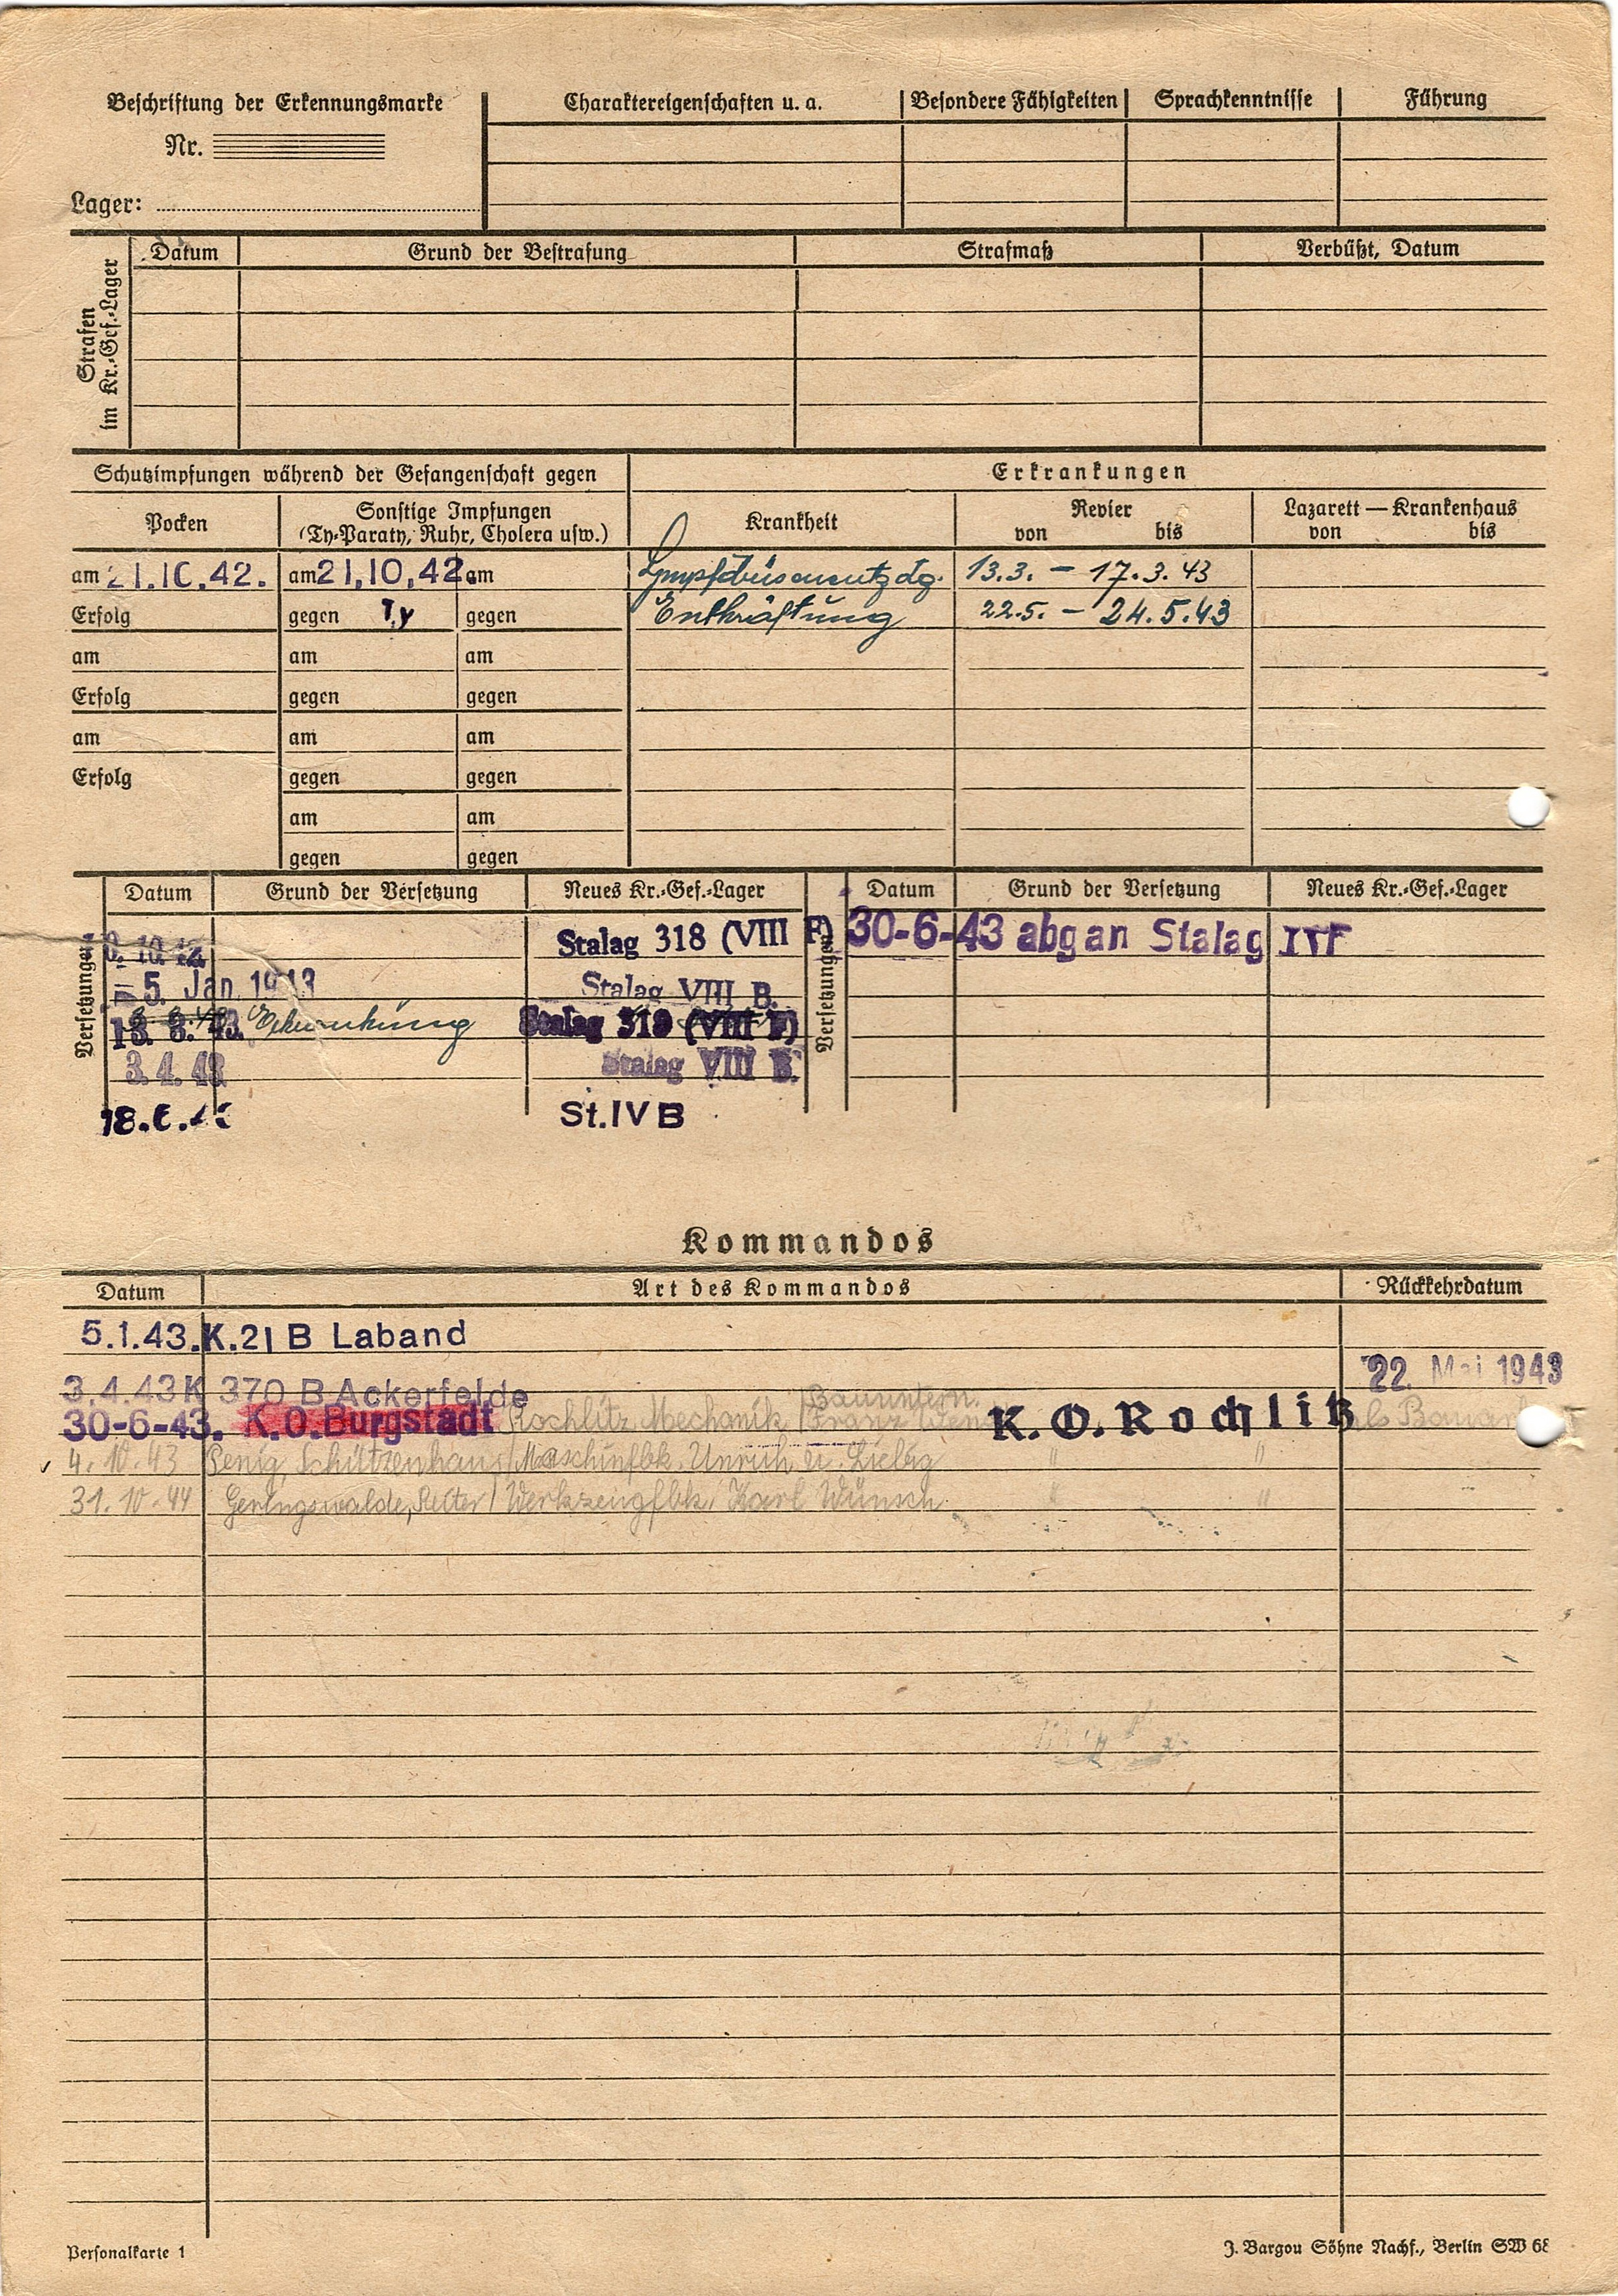 Beschriftung der Erkennungsmarke
Nr.
Lager:
Charaktereigenschaften u. a. Besondere Fähigkeiten Sprachkenntnisse Führung
Strafen im Kr.-Gef.-Lager
Datum Grund der Bestrafung Strafmaß Verbüßt, Datum
Schutzimpfungen während der Gefangenschaft gegen Erkrankungen
Pocken Sonstige Impfungen (Ty-Paraty, Ruhr, Cholera usw.) Krankheit Revier von bis Lazarett — Krankenhaus von bis
am 21.10.42. am 21.10.42 am 13.3. - 17.3.43
Erfolg gegen Ty gegen Entkräftung 22.5. - 24.5.43
am am am
Erfolg gegen gegen
am am am
Erfolg gegen gegen
am am
gegen gegen
Versetzungen Datum Grund der Versetzung Neues Kr.-Gef.-Lager Versetzungen Datum Grund der Versetzung Neues Kr.-Gef.-Lager
Stalag 318 (VIII F) 30-6-43 abg an Stalag IVF
5. Jan. 1943 Stalag VIII B.
Erkrankung Stalag 319 (VIII F)
3.4.43 Stalag VIII B.
18.6. St. IV B
Kommandos
Datum Art des Kommandos Rückkehrdatum
5.1.43. K.21 B Laband
3.4.43 K 370 B Ackerfelde 22. Mai 1943
Bauuntern.
30-6-43. K.O. Burgstädt Rochlitz, Mechanik / Franz K.O. Rochlitz als
4.10.43 Penig, Schützenhaus / Maschinfbk. Unruh u. Liebig " "
31.10.44 Geringswalde, Reiter / Werkzeugfbk. Karl Wünsch " "
Personalkarte 1
J. Bargou Söhne Nachf., Berlin SW 68